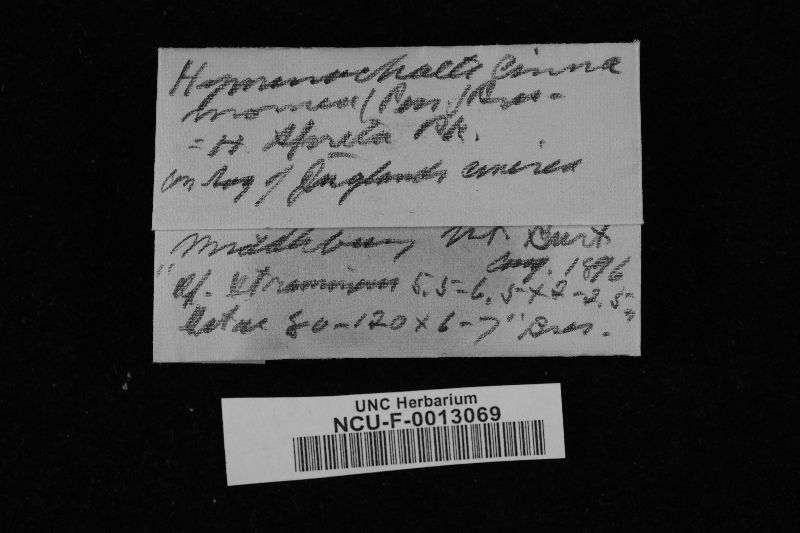 Hymenochaete Cinna
momea (Per.) Bres -
= H. Spreta Pk.
on log of Juglands cinerea
Middlebury Vt. Burt
Aug. 1896
5.5-6.5 x 2-2.5
Setae 80-120 x 6-7" Bres.
UNC Herbarium
NCU-F-0013069